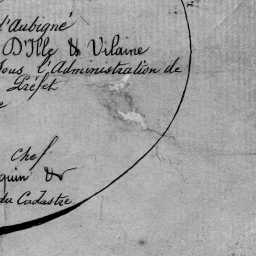 d'Aubigné
D'Ille & Vilaine
Sous l'Administration de
Préfet
Chef
quin &
du Cadastre